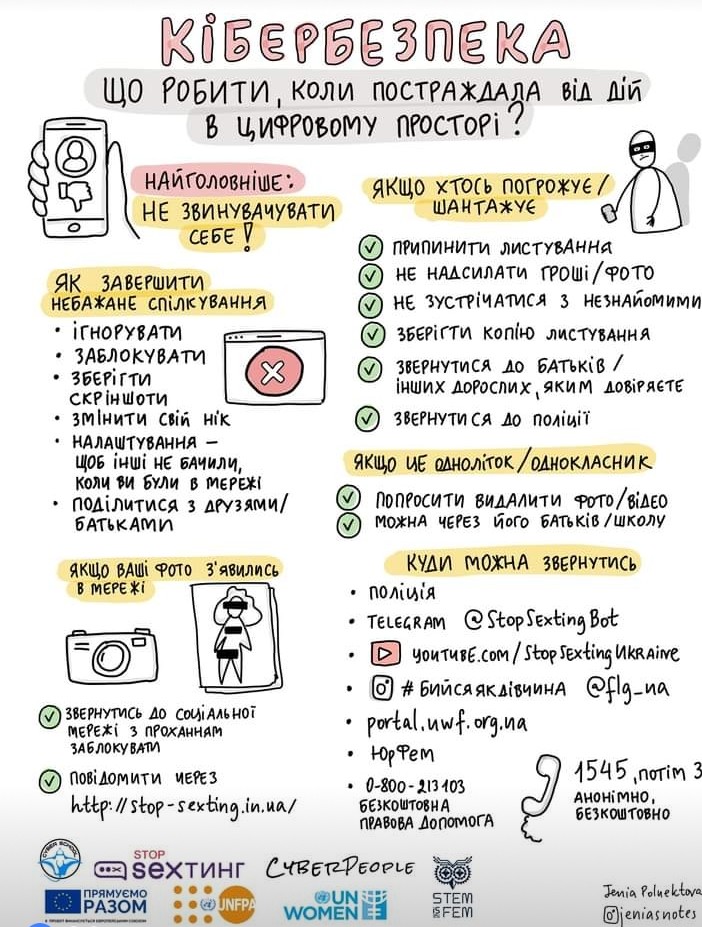 КІБЕРБЕЗПЕКА
ЩО РОБИТИ, КОЛИ ПОСТРАЖДАЛА ВІД ДІЙ
В ЦИФРОВОМУ ПРОСТОРІ?
НАЙГОЛОВНІШЕ:
НЕ ЗВИНУВАЧУВАТИ
СЕБЕ!
ЯК ЗАВЕРШИТИ
НЕБАЖАНЕ СПІЛКУВАННЯ
• ІГНОРУВАТИ
• ЗАБЛОКУВАТИ
• ЗБЕРІГТИ
СКРІНШОТИ
• ЗМІНИТИ СВІЙ НІК
• НАЛАШТУВАННЯ –
ЩОБ ІНШІ НЕ БАЧИЛИ,
КОЛИ ВИ БУЛИ В МЕРЕЖІ
• ПОДІЛИТИСЯ З ДРУЗЯМИ/
БАТЬКАМИ
ЯКЩО ВАШІ ФОТО З'ЯВИЛИСЬ
В МЕРЕЖІ
ЗВЕРНУТИСЬ ДО СОЦІАЛЬНОЇ
МЕРЕЖІ З ПРОХАННЯМ
ЗАБЛОКУВАТИ
ПОВІДОМИТИ ЧЕРЕЗ
http://stop-sexting.in.ua/
ЯКЩО ХТОСЬ ПОГРОЖУЄ/
ШАНТАЖУЄ
ПРИПИНИТИ ЛИСТУВАННЯ
НЕ НАДСИЛАТИ ГРОШІ/ФОТО
НЕ ЗУСТРІЧАТИСЯ З НЕЗНАЙОМИМИ
ЗБЕРІГТИ КОПІЮ ЛИСТУВАННЯ
ЗВЕРНУТИСЯ ДО БАТЬКІВ/
ІНШИХ ДОРОСЛИХ, ЯКИМ ДОВІРЯЄТЕ
ЗВЕРНУТИСЯ ДО ПОЛІЦІЇ
ЯКЩО ЦЕ ОДНОЛІТОК/ОДНОКЛАСНИК
ПОПРОСИТИ ВИДАЛИТИ ФОТО/ВІДЕО
МОЖНА ЧЕРЕЗ ЙОГО БАТЬКІВ/ШКОЛУ
КУДИ МОЖНА ЗВЕРНУТИСЬ
• ПОЛІЦІЯ
• TELEGRAM @StopSextingBot
• YOUTUBE.COM/StopSextingUkraine
• #БИЙСЯЯКДІВЧИНА @flg_ua
• portal.uwf.org.ua
• ЮрФем
• 0-800-213103
БЕЗКОШТОВНА
ПРАВОВА ДОПОМОГА
1545, ПОТІМ 3
АНОНІМНО,
БЕЗКОШТОВНО
CYBER SCHOOL
STOP
SEXТИНГ
CYBERPEOPLE
STEM
IS FEM
ПРЯМУЄМО
РАЗОМ
UNFPA
UN
WOMEN
Jenia Poluektova
jeniasnotes